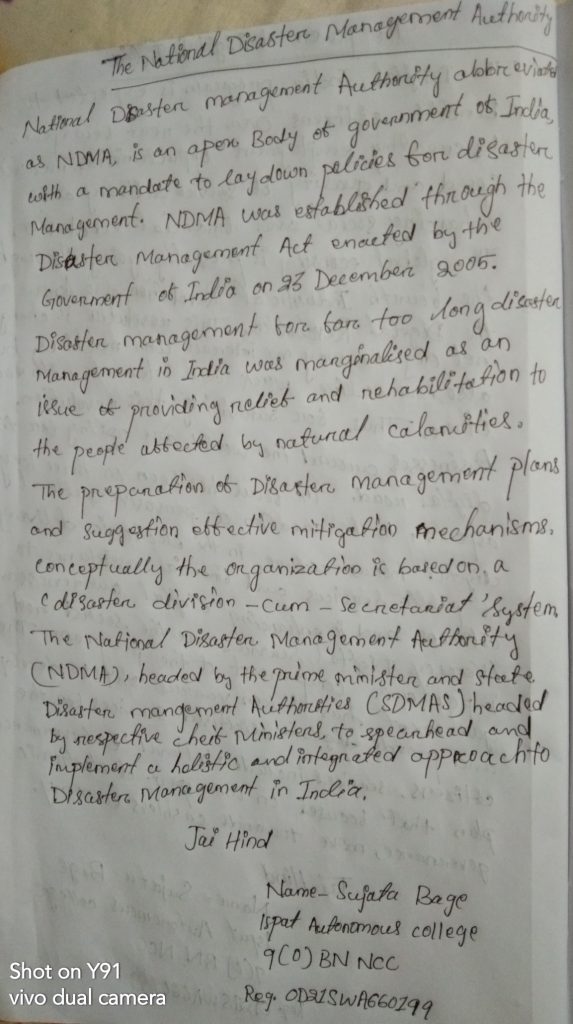 The National Disaster Management Authority
National Disaster management Authority abbreviated
as NDMA, is an apex Body of government of India,
with a mandate to lay down policies for disaster
Management. NDMA was established through the
Disaster Management Act enacted by the
Government of India on 23 December 2005.
Disaster management for far too long disaster
Management in India was marginalised as an
issue of providing relief and rehabilitation to
the people affected by natural calamities.
The preparation of Disaster management plans
and suggestion effective mitigation mechanisms.
Conceptually the organization is based on, a
'disaster division - cum - secretariat' system
The National Disaster Management Authority
(NDMA), headed by the prime minister and state
Disaster mangement Authorities (SDMAS) headed
by respective cheif ministers, to spearhead and
implement a holistic and integrated approach to
Disaster Management in India.
Jai Hind
Name- Sujata Bage
Ispat Autonomous college
9(O) BN NCC
Reg. OD21SWA660199
Shot on Y91
vivo dual camera